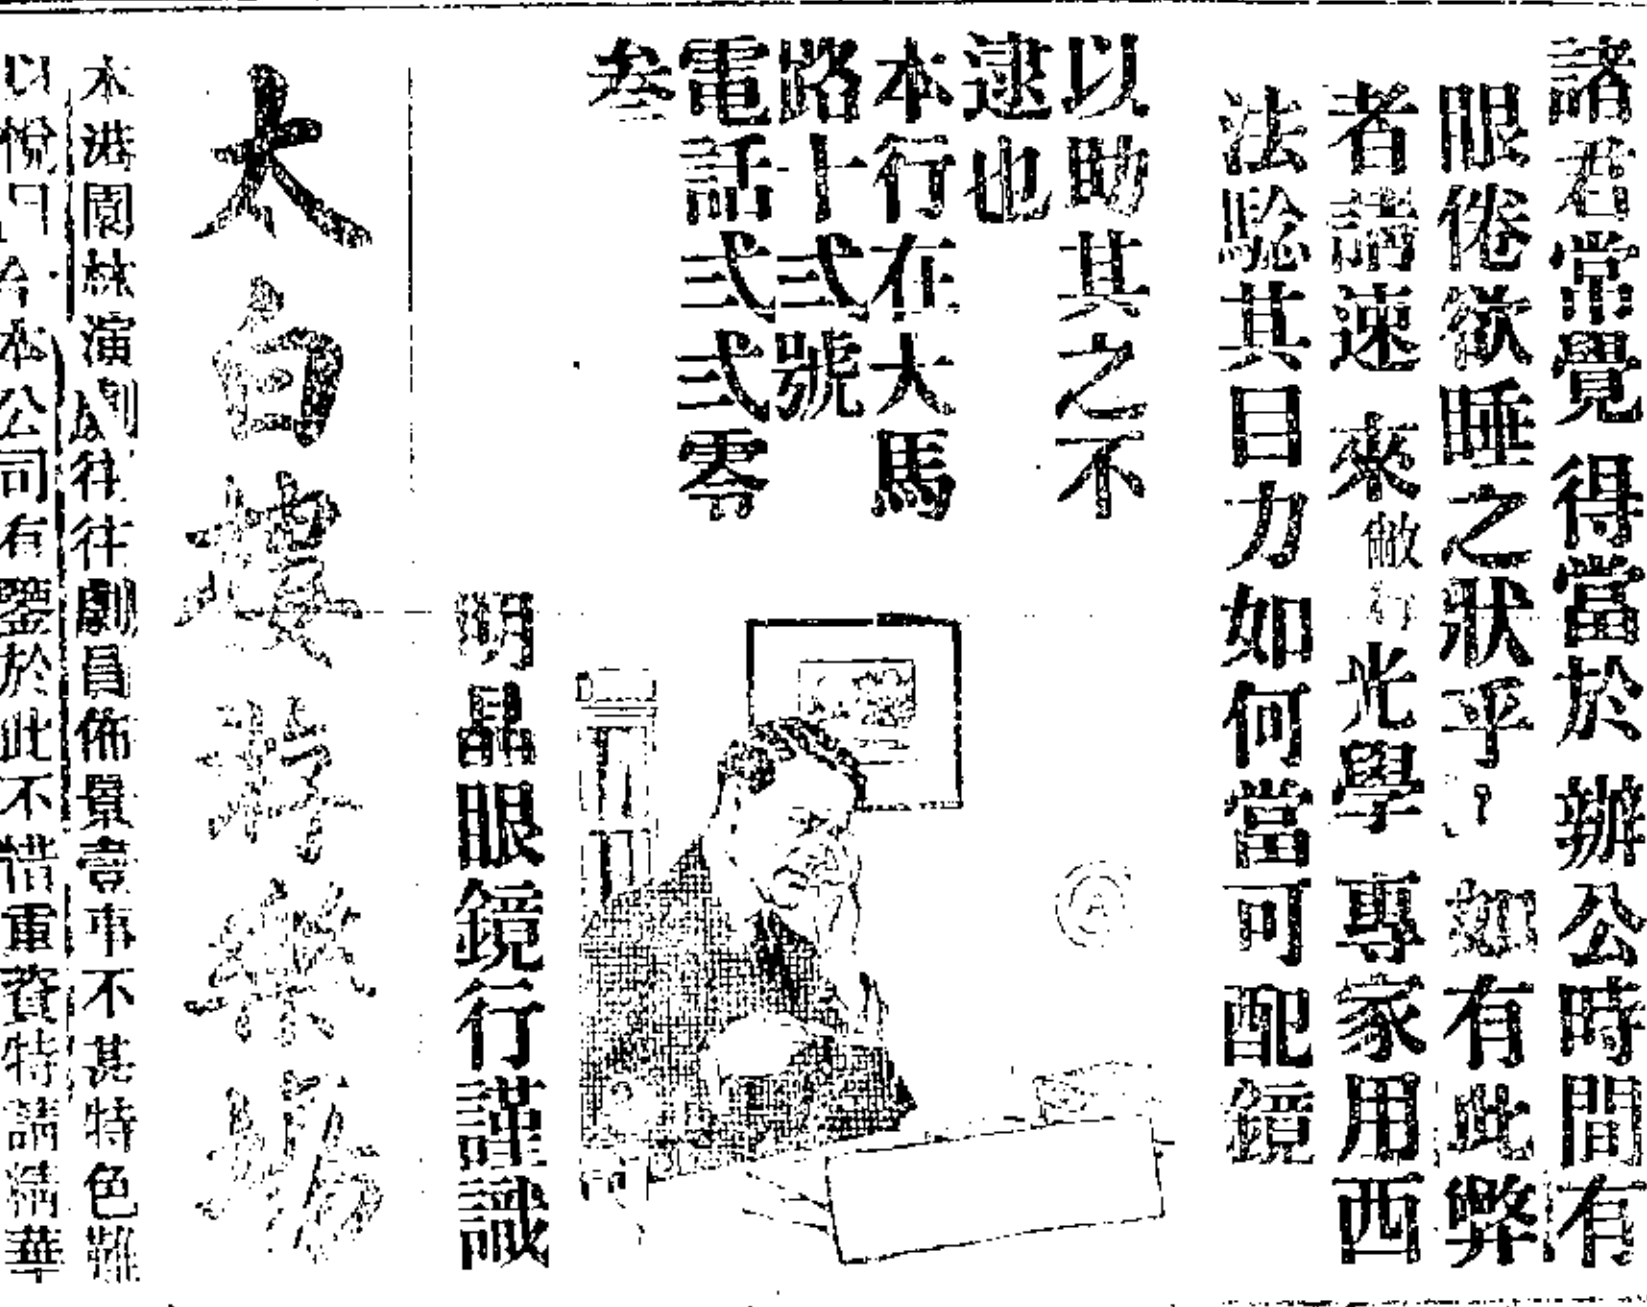 諸君常覺得當於辦公時間有
眼倦欲睡之狀乎?如有此弊
者請速來敝行光學專家用西
法驗其目力如何當可配鏡
以助其之不
逮也
本行在大馬
路十弍號
電話弍弍零
叁
明晶眼鏡行謹識
太白樓游樂場
本港園林演劇以往往往劇員佈景壹事不甚特色難
以悅目今本公司有鑒於此不惜重資特請精華